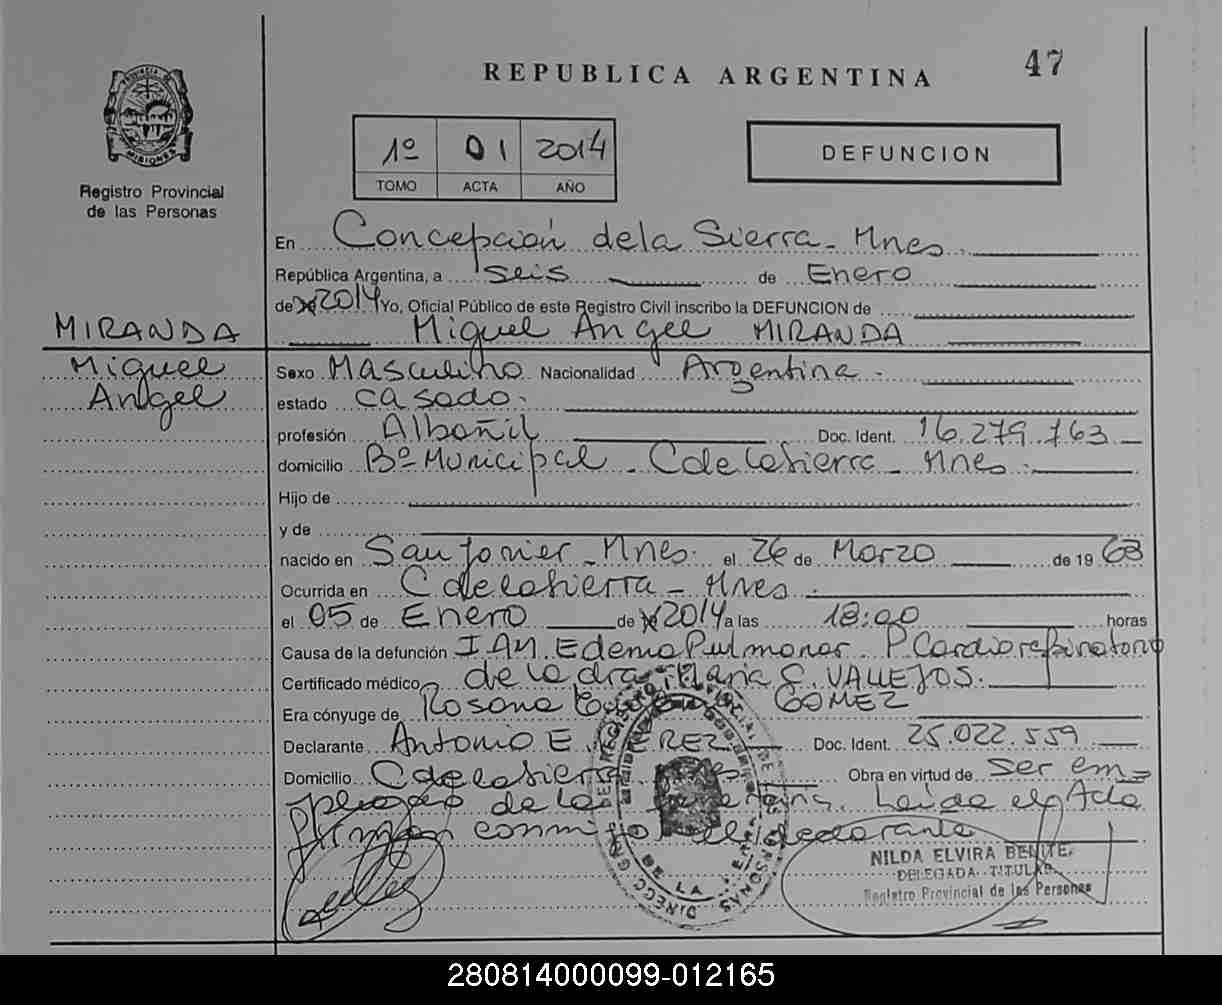 47
REPUBLICA ARGENTINA
PROVINCIA DE
MISIONES
1º 01 2014
TOMO ACTA AÑO
DEFUNCION
Registro Provincial
de las Personas
En Concepción de la Sierra - Mnes
República Argentina, a seis de Enero
de 2014 Yo, Oficial Público de este Registro Civil inscribo la DEFUNCION de
MIRANDA Miguel Angel MIRANDA
Miguel Sexo Masculino Nacionalidad Argentina
Angel estado casado.
profesión Albañil Doc. Ident. 16.279.763
domicilio Bº Municipal - C de la Sierra - Mnes
Hijo de
y de
nacido en San Javier - Mnes. el 26 de Marzo de 1963
Ocurrida en C de la Sierra - Mnes.
el 05 de Enero de 2014 a las 18:00 horas
Causa de la defunción IAM. Edema Pulmonar. P Cardiorespiratorio
Certificado médico de la dra. Maria C. VALLEJOS.
Era cónyuge de Rosana GOMEZ
Declarante Antonio E. Doc. Ident. 25.022.559
Domicilio C de la Sierra Obra en virtud de ser em=
pleado de la Leída el Acta
firman conmigo el declarante
NILDA ELVIRA
DELEGADA TITULAR
Registro Provincial de las Personas
280814000099-012165